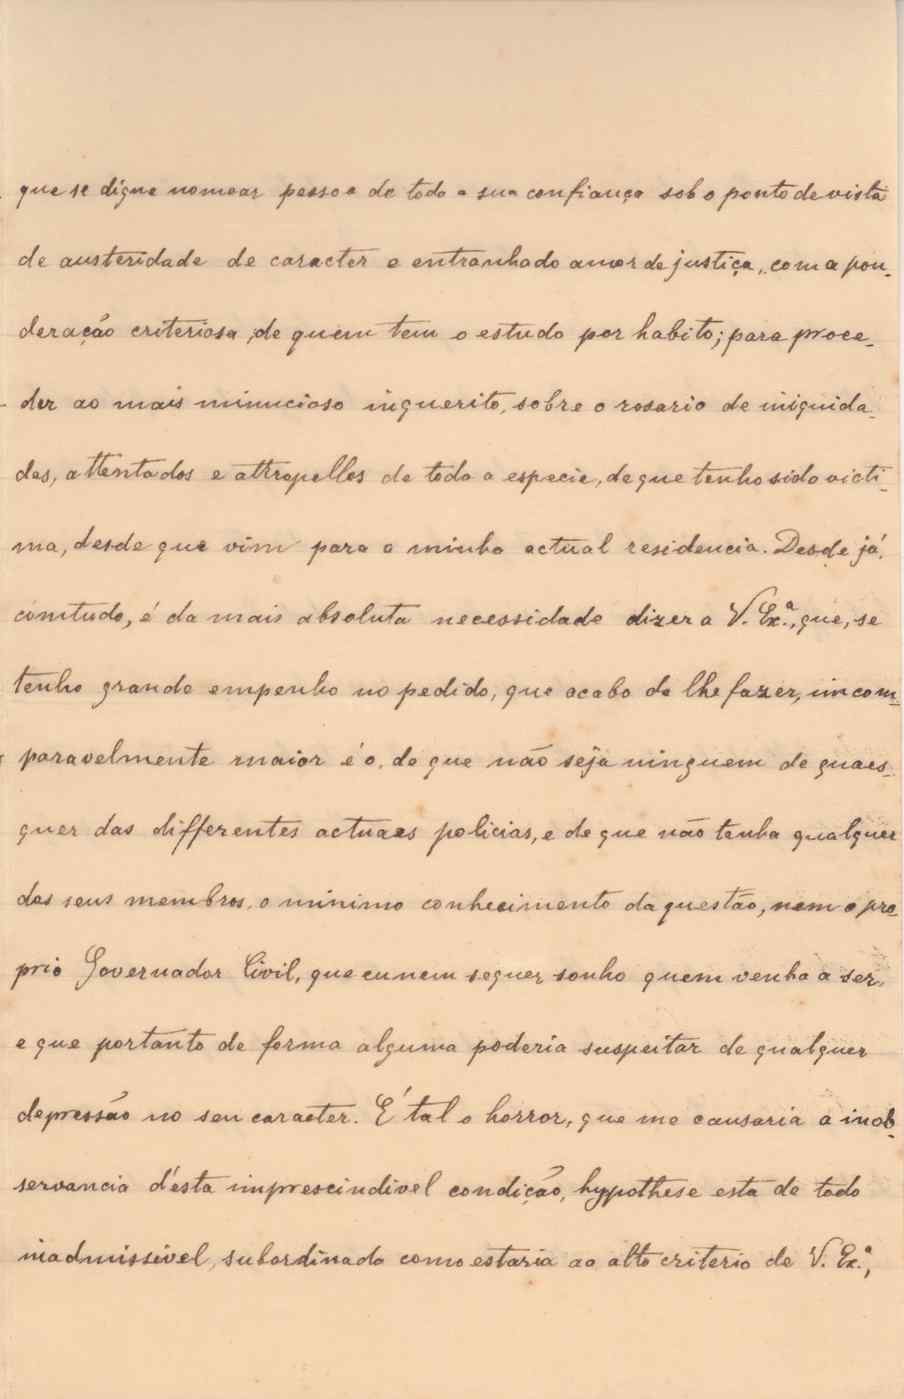 que se digne nomear pessoa de toda a sua confiança sob o ponto de vista
de austeridade de caracter e entranhado amor de justiça, com a pon-
deração criteriosa, de quem tem o estudo por habito; para proce-
der ao mais minucioso inquerito, sobre o rosario de iniquida-
des, attentados e attropellos de toda a especie, de que tenho sido victi-
ma, desde que vim para a minha actual residencia. Desde já,
comtudo, é da mais absoluta necessidade dizer a V. Ex.ª, que, se
tenho grande empenho no pedido, que acabo de lhe fazer, incom-
paravelmente maior é o, de que não seja ninguem de quaes-
quer das differentes actuaes policias, e de que não tenha qualquer
dos seus membros, o minimo conhecimento da questão, nem o pro-
prio Governador Civil, que eu nem sequer sonho quem venha a ser,
e que portanto de forma alguma poderia suspeitar de qualquer
depressão no seu caracter. É tal o horror, que me causaria a inob-
servancia d'esta imprescindivel condição, hypothese esta de todo
inadmissivel, subordinada como estaria ao alto criterio de V. Ex.ª,